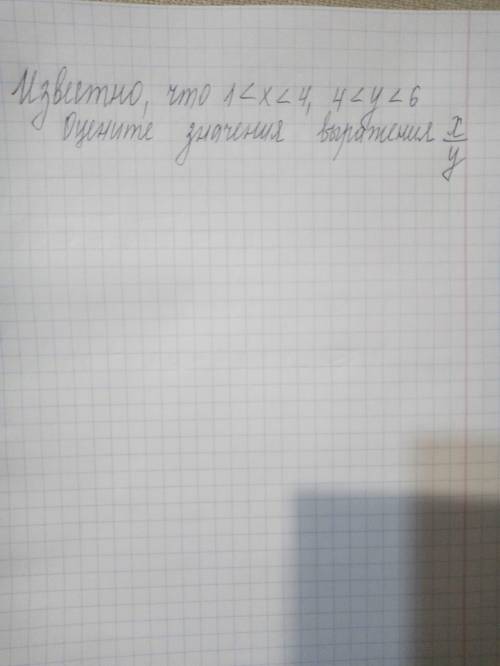 Известно, что 1<x<4, 4<y<6
Оцените значения выражения x/y